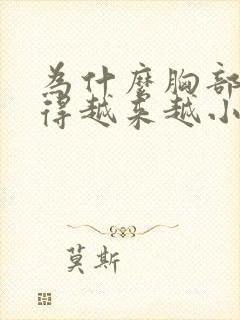 為什麼胸部
得越來越小
莫斯